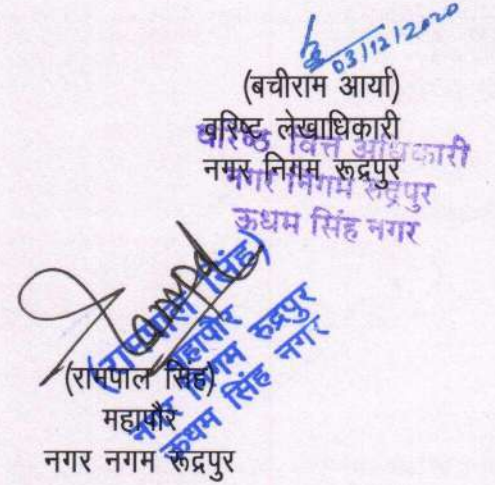 03/12/2020
(बचीराम आर्या)
वरिष्ट लेखाधिकारी
नगर निगम रूद्रपुर
वरिष्ठ वित्त अधिकारी
नगर निगम रुद्रपुर
ऊधम सिंह नगर
(रामपाल सिंह)
महापौर
नगर निगम रुद्रपुर
ऊधम सिंह नगर
(रामपाल सिंह)
महापौर
नगर नगम रूद्रपुर